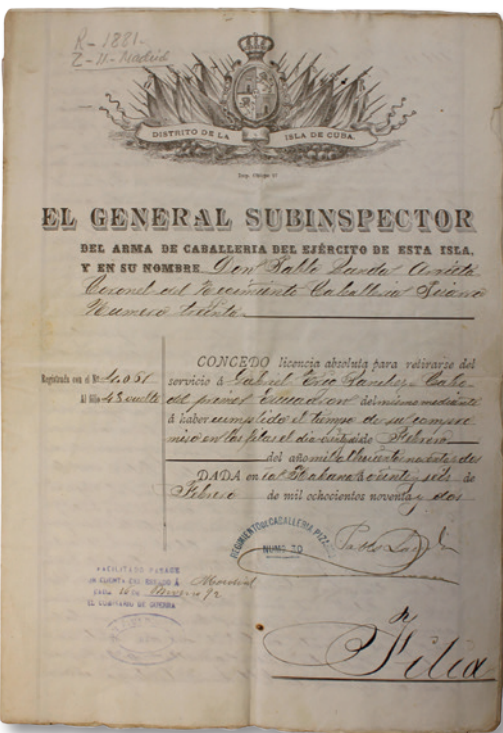 R - 1881 -
Z - 11 - Madrid
DISTRITO DE LA ISLA DE CUBA.
Imp. Obispo
EL GENERAL SUBINSPECTOR
DEL ARMA DE CABALLERIA DEL EJÉRCITO DE ESTA ISLA,
Y EN SU NOMBRE Don Pablo Landa Arrieta
Coronel del Regimiento Caballeria Pizarro
Numero treinta
CONCEDO licencia absoluta para retirarse del
Registrada con el Nº 4.061 servicio á Gabriel Sanchez Cabo
Al fólio 43 vuelto del primer Escuadron del mismo mediante
á haber cumplido el tiempo de su compro
miso en las filas el dia de Febrero
del año mil ochocientos noventa y dos
DADA en la Habana á veinte y seis de
Febrero de mil ochocientos noventa y dos
REGIMIENTO DE CABALLERIA PIZARRO
NUMº 30
Pablo Landa
FACILITADO PASAGE
POR CUENTA DEL ESTADO Á
92
EL COMISARIO DE GUERRA